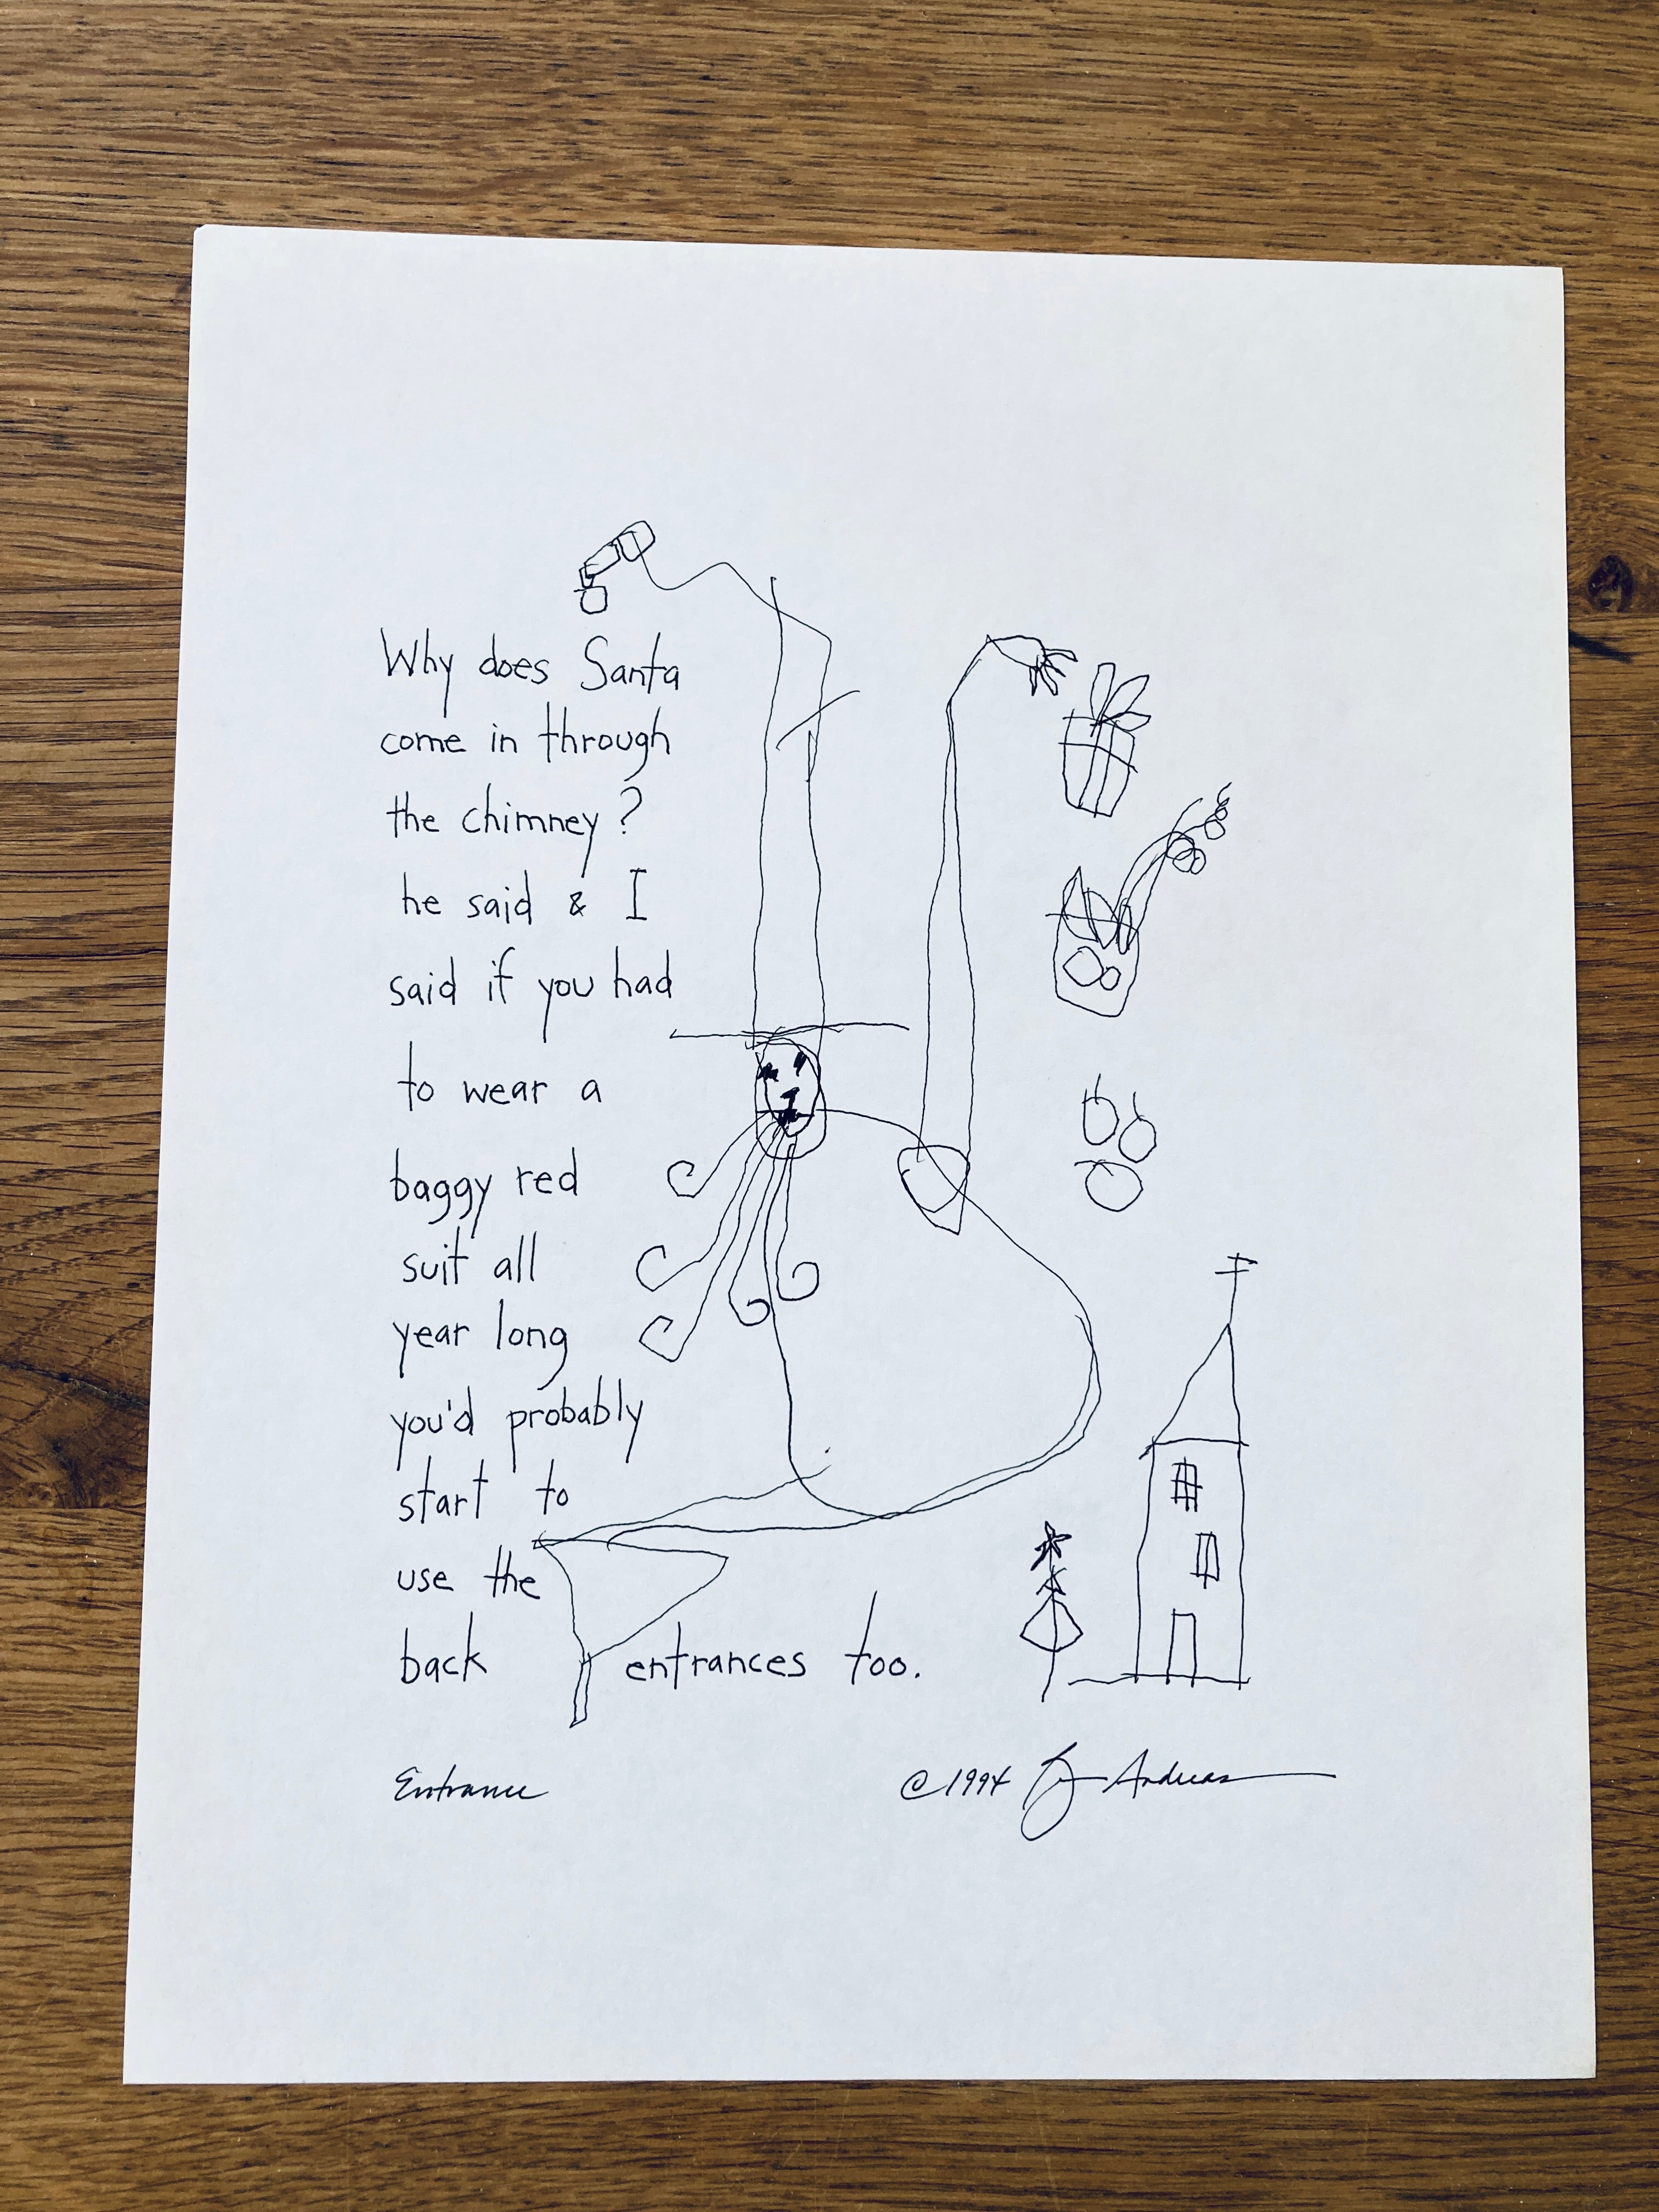 Why does Santa
come in through
the chimney?
he said & I
said if you had
to wear a
baggy red
suit all
year long
you'd probably
start to
use the
back entrances too.
Entrance
©1994 Andreas